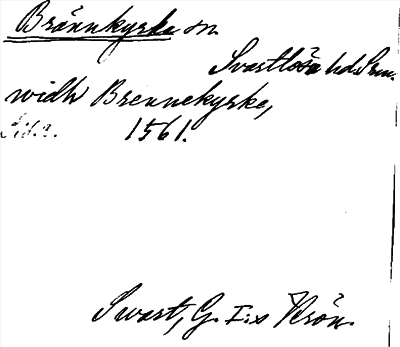 Brännkyrka sn.
Svartlösa hd. Srm.
widh Brennekyrke,
1561.
Swart, G. I:s Krön.